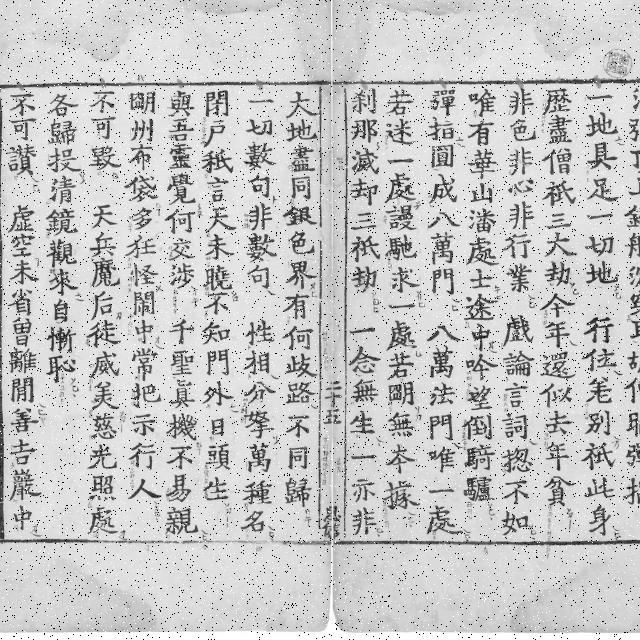 一地具足一切地　行位差別祇此身
歷盡僧祇三大劫今年還似去年貧
非色非心非行業　戲論言詞揔不如
唯有華山潘處士途中吟望倒騎驢
彈指圓成八萬門　八萬法門唯一處
若迷一處謾馳求一處若明無本據
刹那滅却三祇劫　一念無生一亦非
大地盡同銀色界有何歧路不同歸
一切數句非數句　性相分拏萬種名
閉戶秖言天未曉不知門外日頭生
與吾靈覺何交涉　千聖眞機不易親
明州布袋多狂怪鬧中常把示行人
不可毀　天兵魔后徒威美慈光照處
各歸投清鏡觀來自慚恥
不可讚　虛空未省曾離間善吉巖中
二十五